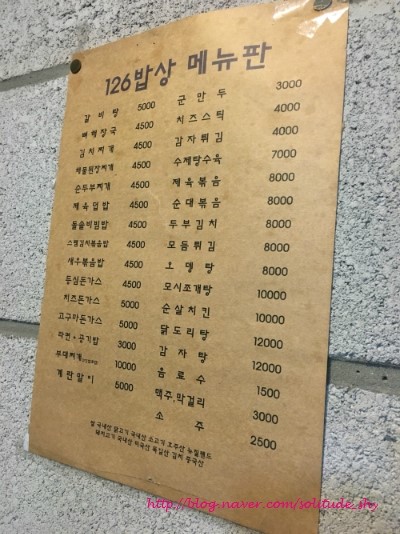 126밥상 메뉴판
갈비탕 5000
뼈해장국 4500
김치찌개 4500
해물된장찌개 4500
순두부찌개 4500
제육덮밥 4500
돌솥비빔밥 4500
스팸김치볶음밥 4500
새우볶음밥 4500
등심돈가스 4500
치즈돈가스 5000
고구마돈가스 5000
라면+공기밥
부대찌개 10000
계란말이 5000
군만두 3000
치즈스틱 4000
감자튀김 4000
수제탕수육 7000
제육볶음 8000
순대볶음 8000
두부김치 8000
모듬튀김 8000
오뎅탕 8000
모시조개탕 10000
순살치킨 10000
닭도리탕 12000
감자탕 12000
음료수 1500
맥주,막걸리 3000
소주 2500
쌀 국내산 닭고기 국내산 소고기 호주산 뉴질랜드
돼지고기 국내산 미국산 독일산 김치 중국산
http://blog.naver.com/solitude_shy